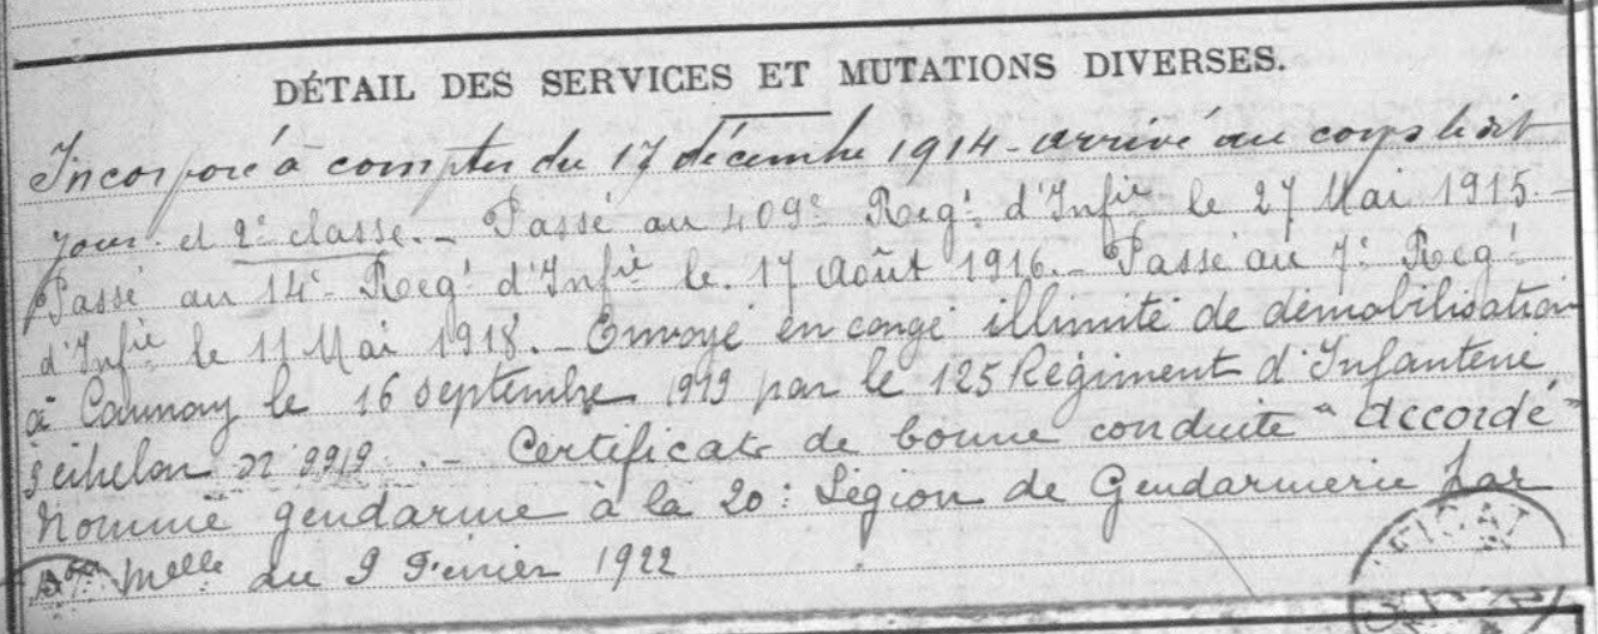 DÉTAIL DES SERVICES ET MUTATIONS DIVERSES.
Incorporé à compter du 17 décembre 1914 - arrivé au corps le dit
jour et 2e classe. - Passé au 409e Regt d'Infie le 27 Mai 1915. -
Passé au 14e Regt d'Infie le 17 Août 1916. - Passé au 7e Regt
d'Infie le 11 Mai 1918. - Envoyé en congé illimité de démobilisation
à Caunay le 16 septembre 1919 par le 125 Régiment d'Infanterie,
échelon n° - Certificat de bonne conduite "Accordé"
Nommé gendarme à la 20e Légion de Gendarmerie par
melle du 9 Février 1922